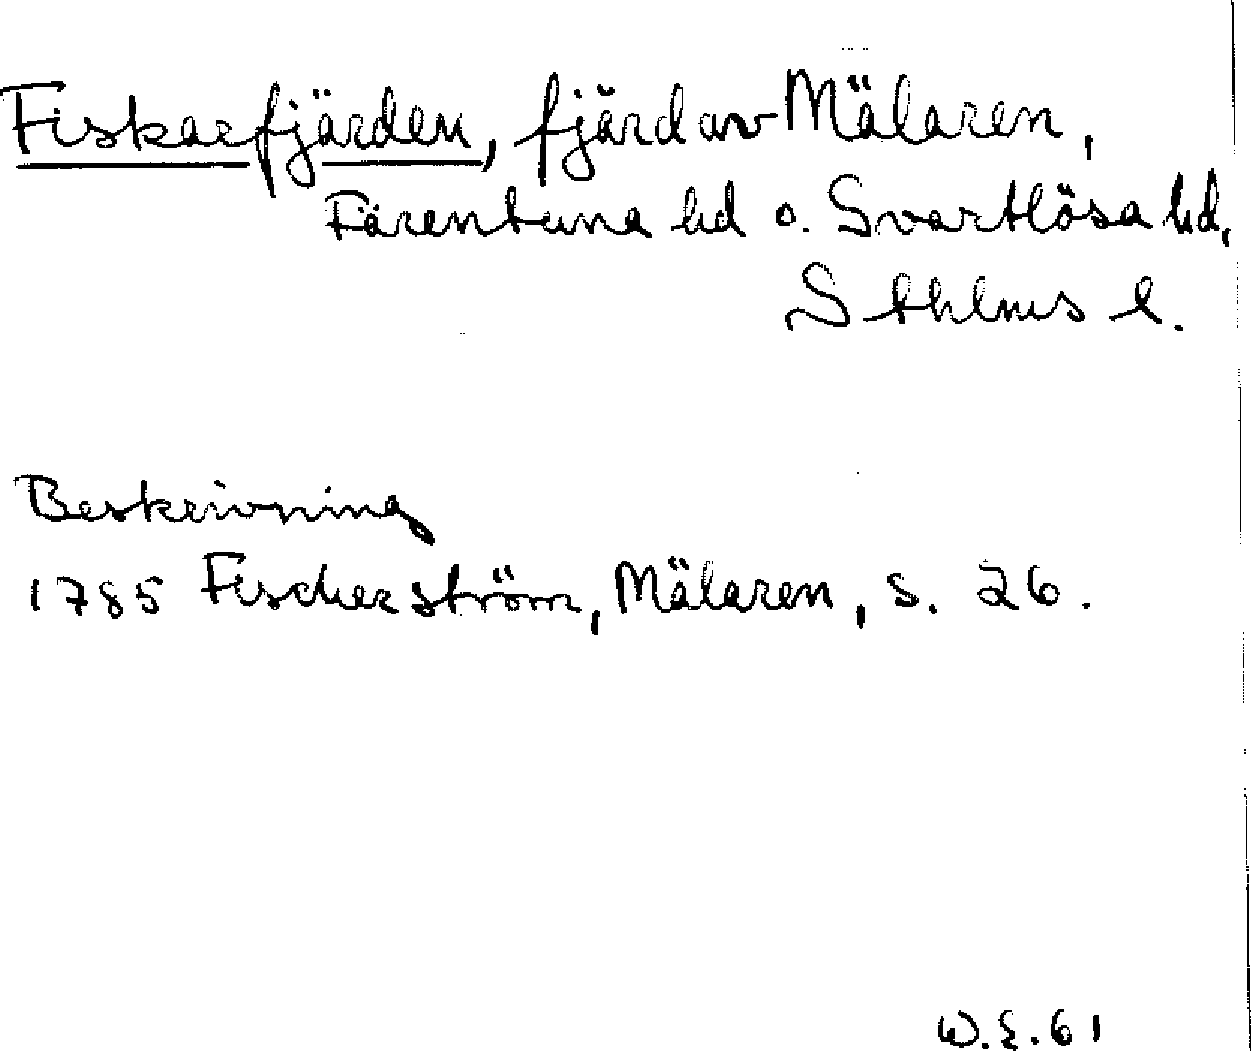 Fiskarfjärden, fjärd av Mälaren,
Färentuna hd o. Svartlösa hd,
Sthlms l.
Beskrivning
1785 Fischerström, Mälaren, s. 26.
W.E.61